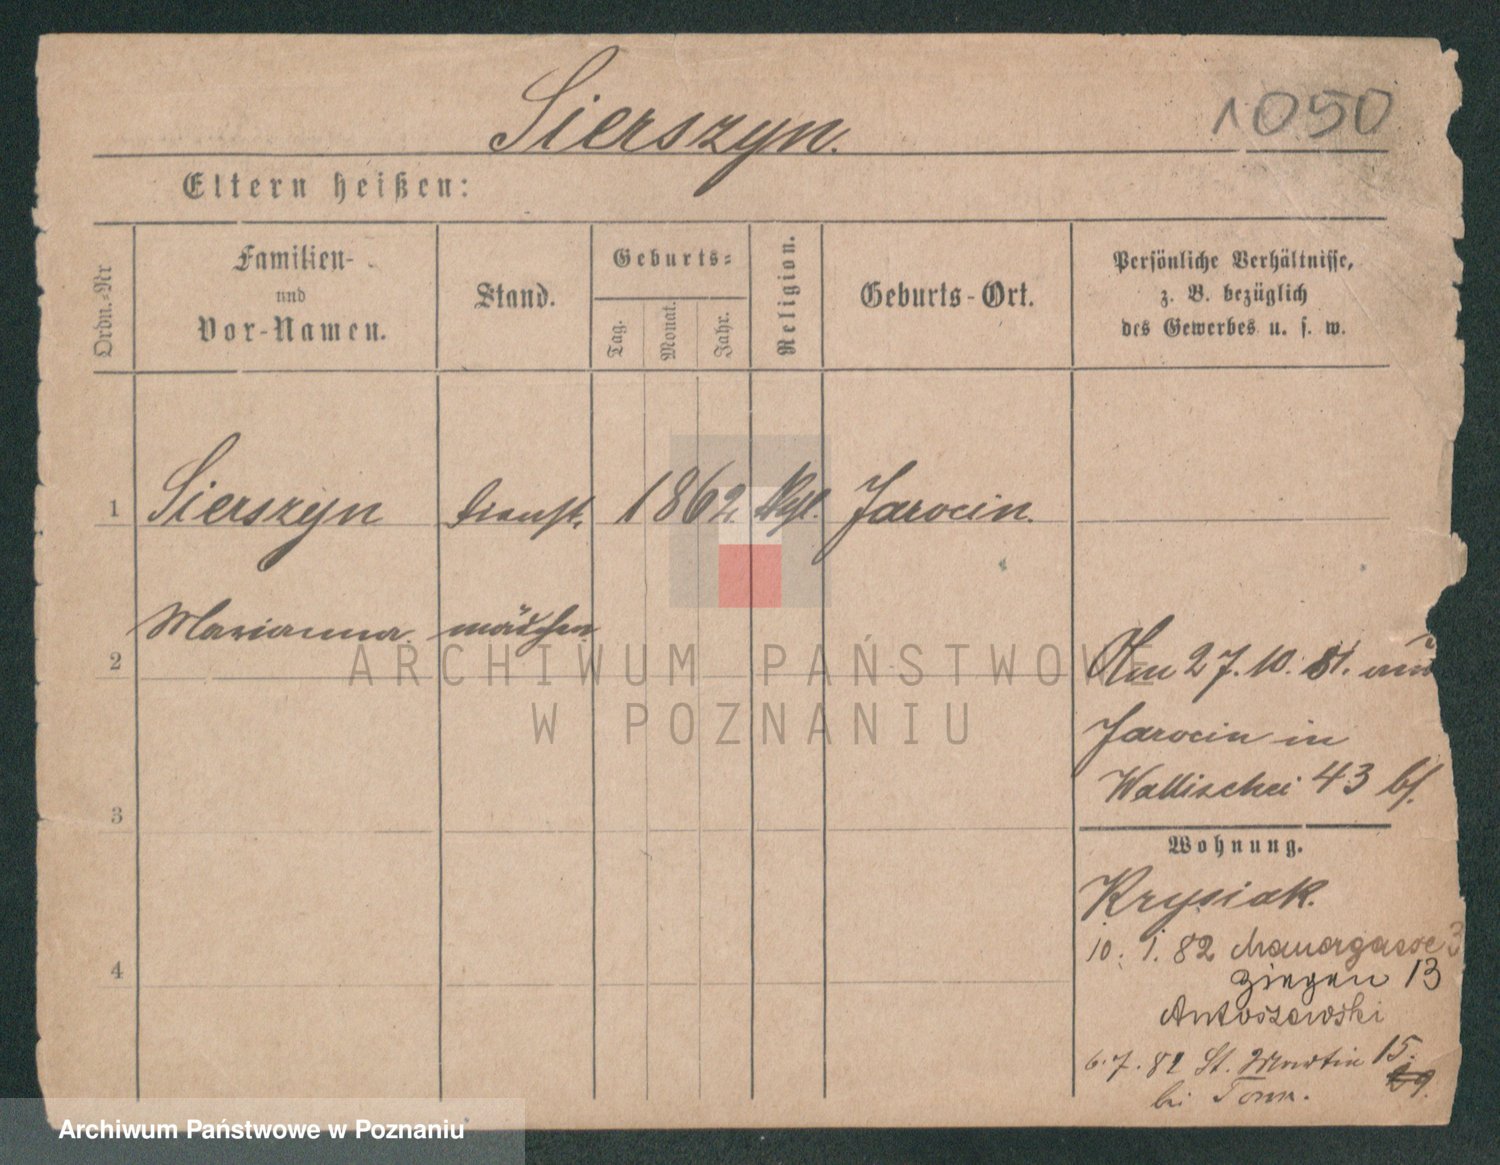 Sierszyn.
1050
Eltern heißen:
Ordn.-Nr
Familien-
und
Vor-Namen.
Stand.
Geburts-
Tag.
Monat.
Jahr.
Religion.
Geburts-Ort.
Persönliche Verhältnisse,
z. B. bezüglich
des Gewerbes u. s. w.
1 Sierszyn Dienst. 1862 Jarocin.
2 Marianna. mädchen
3
4
Am 27. 10. 81. aus
Jarocin in
Wallischei 43 bf.
Wohnung.
Krysiak.
10. 1. 82 Mauergasse 3
Ziegen 13
Antoszewski
6. 7. 82 St. Martin 15.
bei
ARCHIWUM PAŃSTWOWE
W POZNANIU
Archiwum Państwowe w Poznaniu